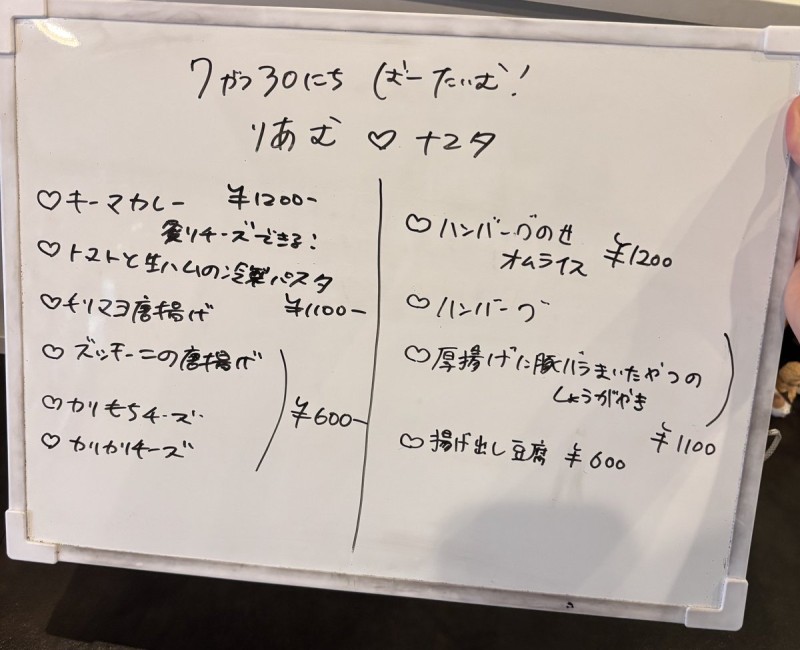 7がつ30にち ばーたいむ!
りあむ ♡ ナユタ
♡ キーマカレー ¥1200-
炙りチーズできる!
♡ トマトと生ハムの冷製パスタ
♡ チリマヨ唐揚げ ¥1100-
♡ ズッキーニの唐揚げ
♡ カリもちチーズ ¥600-
♡ カリカリチーズ
♡ ハンバーグのせ
オムライス ¥1200
♡ ハンバーグ
♡ 厚揚げに豚バラまいたやつの
しょうがやき
¥1100
♡ 揚げ出し豆腐 ¥600